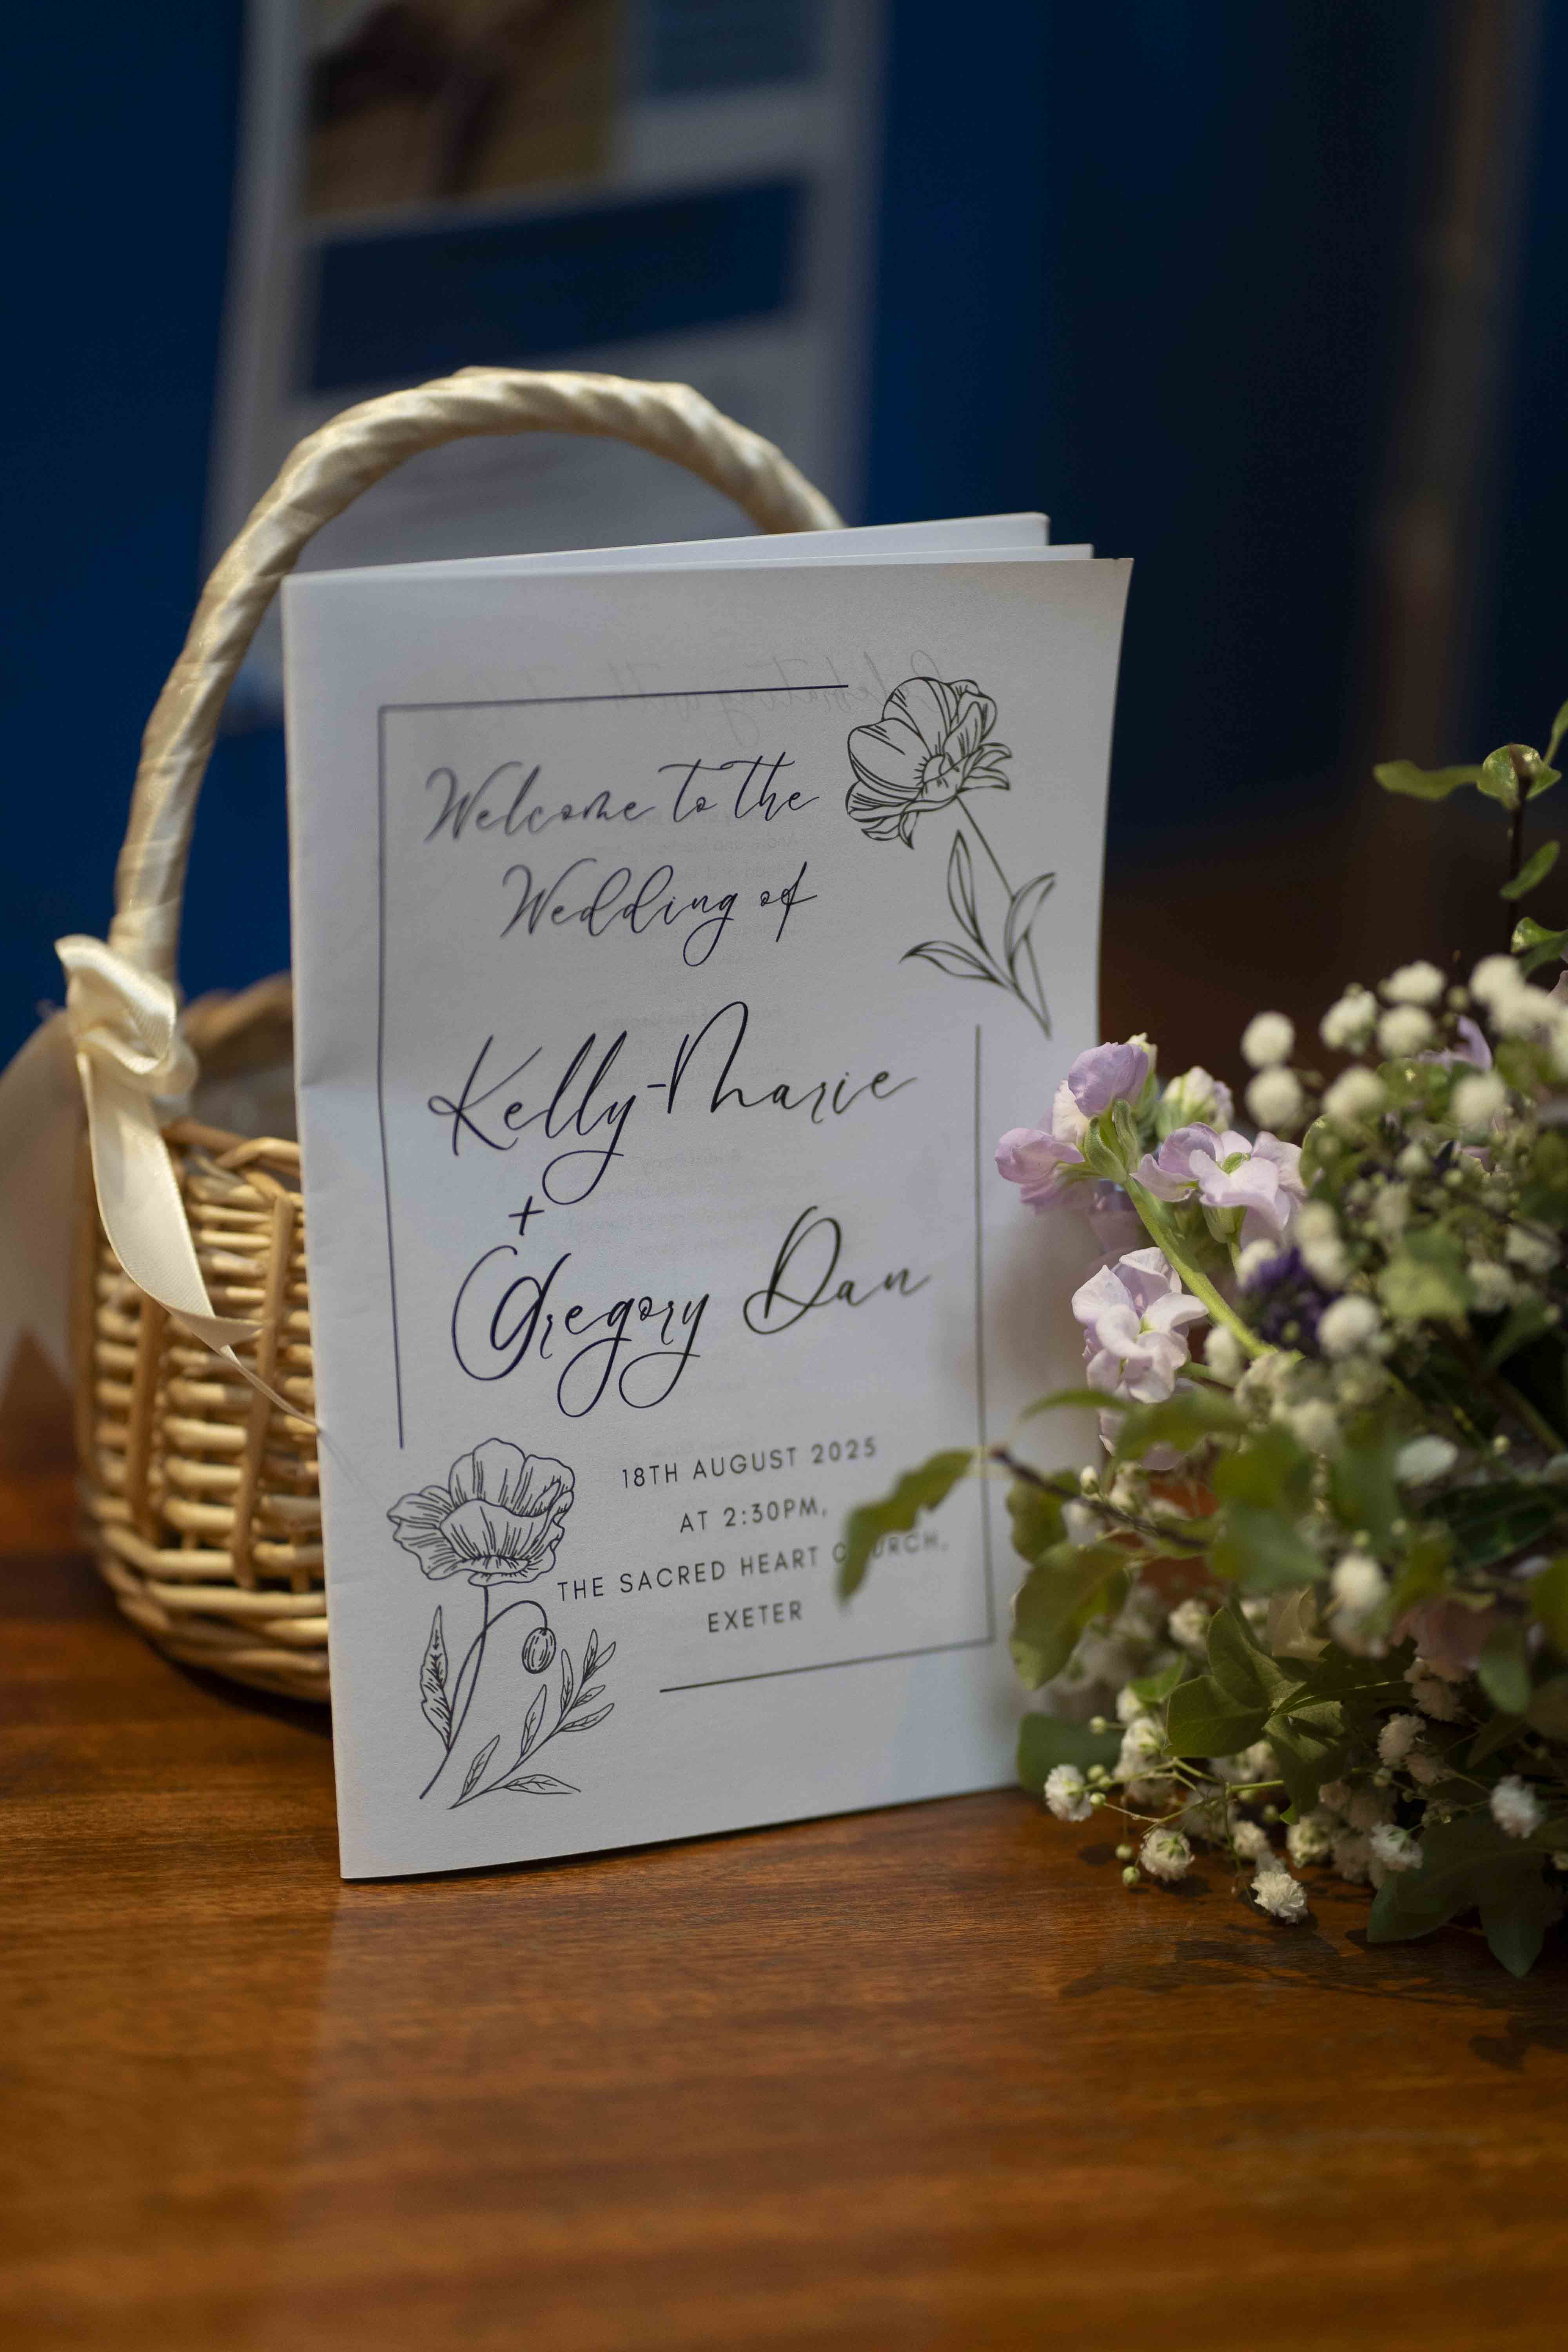 Welcome to the
Wedding of
Kelly-Marie
+
Gregory Dan
18TH AUGUST 2025
AT 2:30PM,
THE SACRED HEART CHURCH,
EXETER